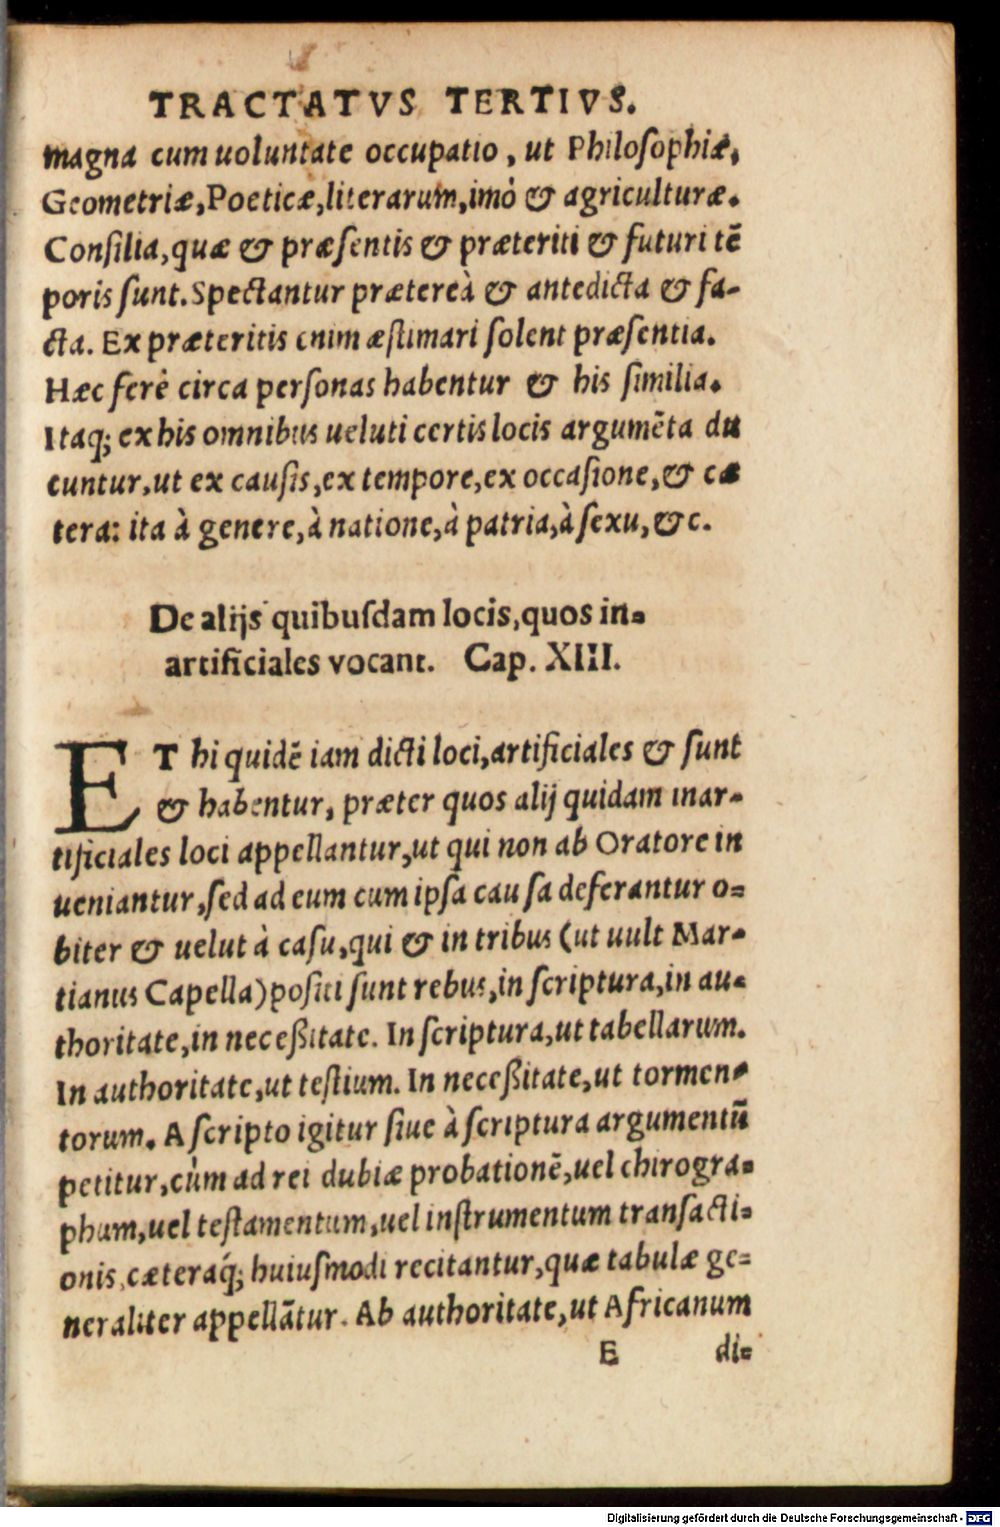 TRACTATVS TERTIVS.
magna cum uoluntate occupatio, ut Philoſophiæ,
Geometriæ, Poeticæ, literarum, imò & agriculturæ.
Conſilia, quæ & præſentis & præteriti & futuri tē
poris ſunt. Spectantur prætereà & antedicta & fa-
cta. Ex præteritis enim æſtimari ſolent præſentia.
Hæc ferè circa perſonas habentur & his ſimilia.
Itaq; ex his omnibus ueluti certis locis argumēta du
cuntur, ut ex cauſis, ex tempore, ex occaſione, & cæ
tera: ita à genere, à natione, à patria, à ſexu, &c.
De alijs quibuſdam locis, quos in-
artificiales vocant. Cap. XIII.
ET hi quidē iam dicti loci, artificiales & ſunt
& habentur, præter quos alij quidam inar-
tificiales loci appellantur, ut qui non ab Oratore in
ueniantur, ſed ad eum cum ipſa cauſa deferantur o-
biter & uelut à caſu, qui & in tribus (ut uult Mar-
tianus Capella) poſiti ſunt rebus, in ſcriptura, in au-
thoritate, in neceßitate. In ſcriptura, ut tabellarum.
In authoritate, ut teſtium. In neceßitate, ut tormen-
torum. A ſcripto igitur ſiue à ſcriptura argumentū
petitur, cùm ad rei dubiæ probationē, uel chirogra-
phum, uel teſtamentum, uel inſtrumentum tranſacti-
onis, cæteraq́; huiuſmodi recitantur, quæ tabulæ ge-
neraliter appellātur. Ab authoritate, ut Africanum
E di-
Digitalisierung gefördert durch die Deutsche Forschungsgemeinschaft - DFG